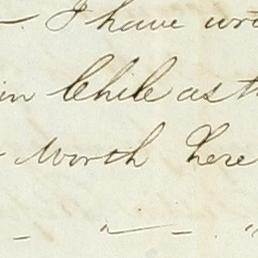 I have
in Chile as
worth here